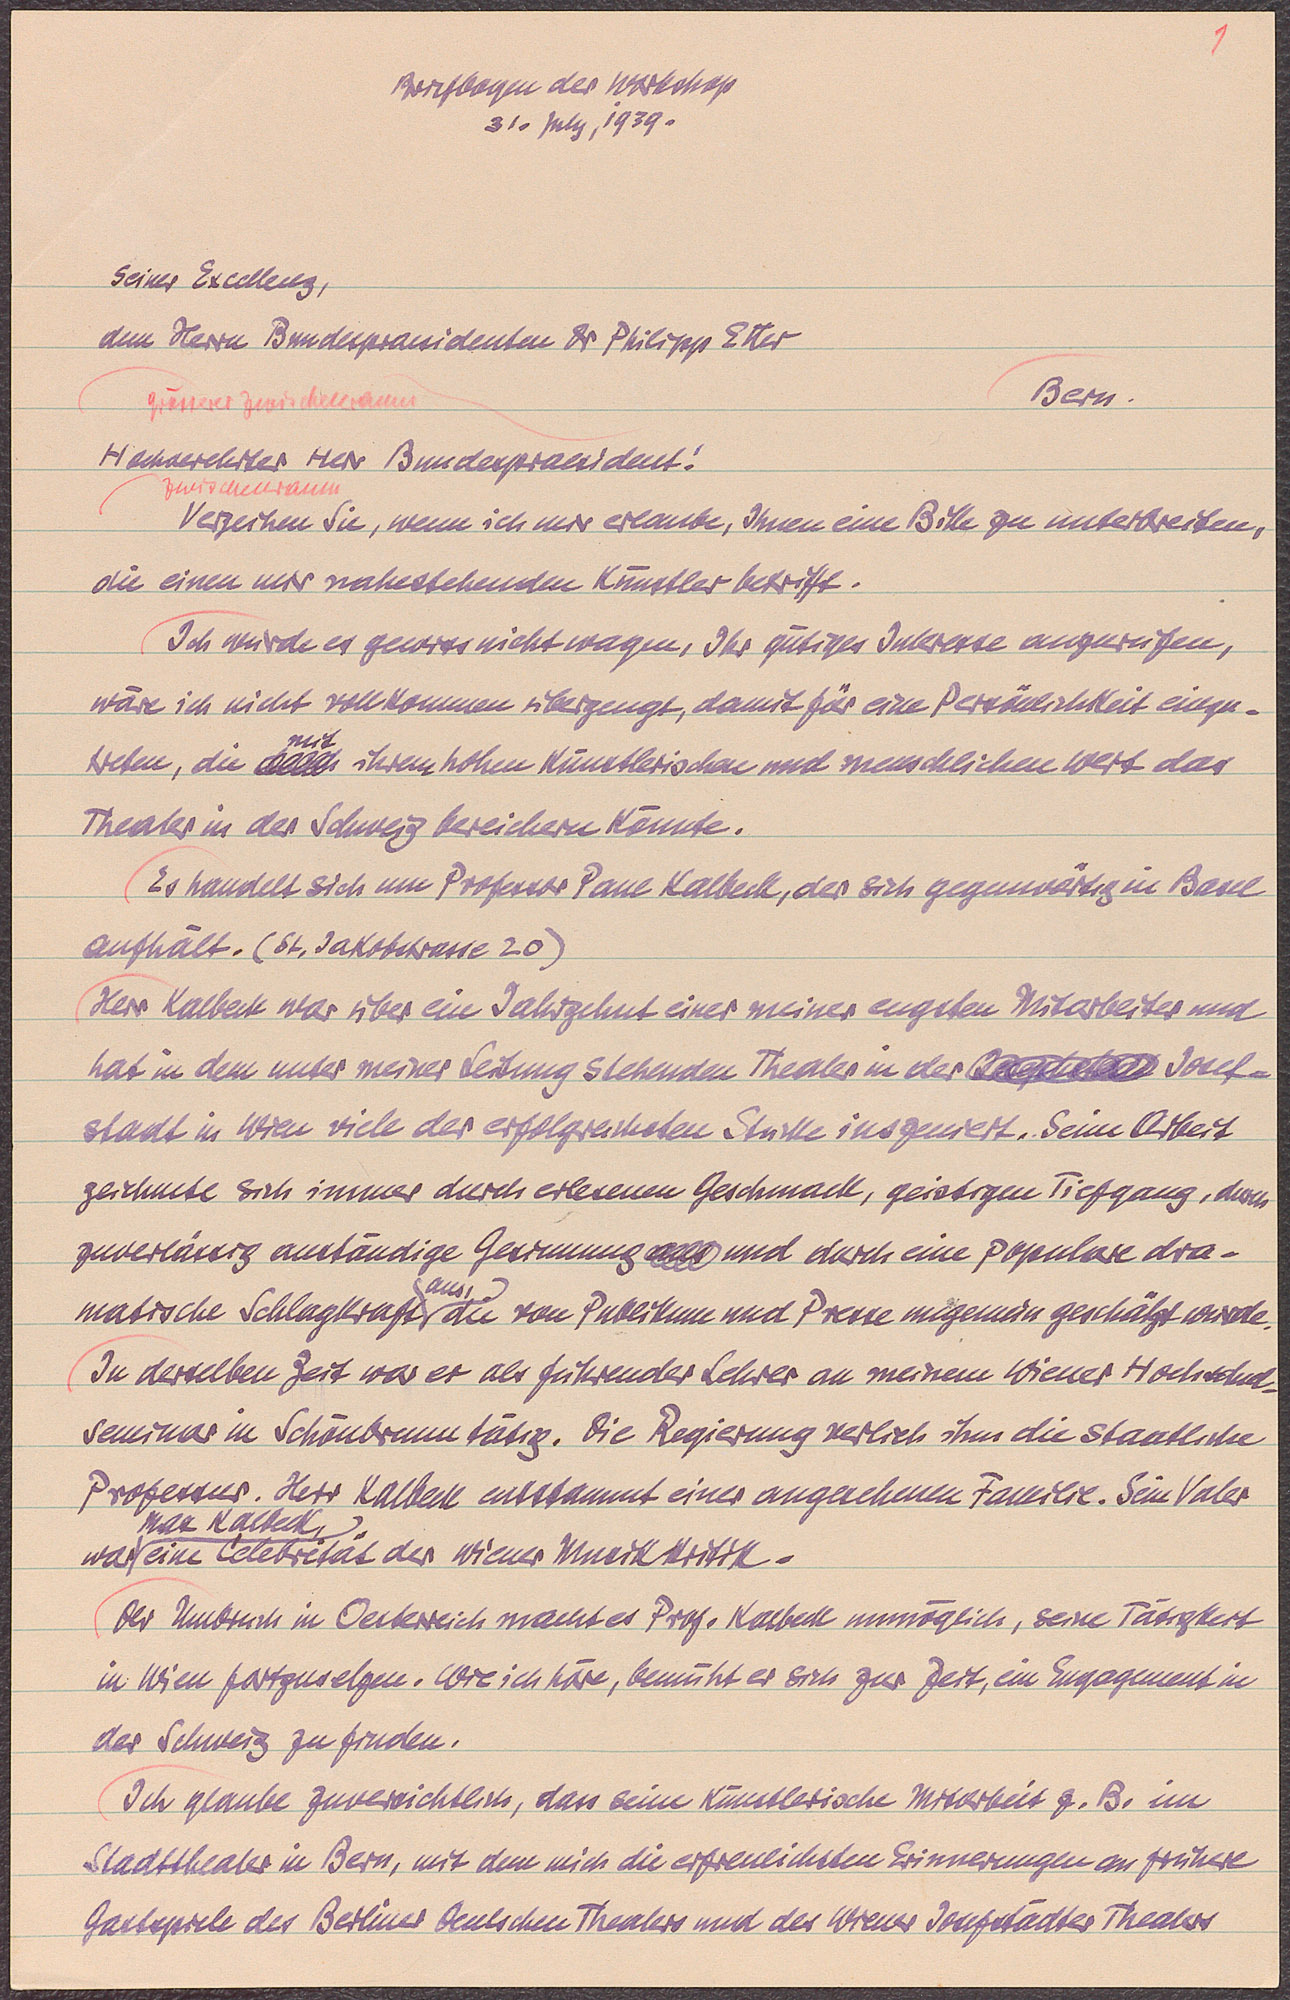 1
Briefbogen der Workshop
31. July, 1939.
Seiner Excellenz,
dem Herrn Bundespraesidenten Dr Philipp Etter
Bern.
grösserer Zwischenraum
Hochverehrter Herr Bundespraesident!
Zwischenraum
Verzeihen Sie, wenn ich mir erlaube, Ihnen eine Bitte zu unterbreiten,
die einen mir nahestehenden Künstler betrifft.
Ich würde es gewiss nicht wagen, Ihr gütiges Interesse anzurufen,
wäre ich nicht vollkommen überzeugt, damit für eine Persönlichkeit einzu-
treten, die mit ihrem hohen künstlerischen und menschlichen Wert das
Theater in der Schweiz bereichern könnte.
Es handelt sich um Professor Paul Kalbeck, der sich gegenwärtig in Basel
aufhält. (St. Jakobstrasse 20)
Herr Kalbeck war über ein Jahrzehnt einer meiner engsten Mitarbeiter und
hat in dem unter meiner Leitung stehenden Theater in der Josef-
stadt in Wien viele der erfolgreichsten Stücke insgeniert. Seine Arbeit
zeichnete sich immer durch erlesenen Geschmack, geistigen Tiefgang, durch
zuverlässig anständige Gesinnung und durch eine populare dra-
matische Schlagkraft aus, die von Publikum und Presse ungemein geschätzt wurde.
In derselben Zeit war er als führender Lehrer an meinem Wiener Hochschul-
seminar in Schönbrunn tätig. Die Regierung verlieh ihm die staatliche
Professur. Herr Kalbeck entstammt einer angesehenen Familie. Sein Vater
Max Kalbeck,
war eine Celebrität der Wiener Musikkritik.
Der Umbruch in Oesterreich macht es Prof. Kalbeck unmöglich, seine Tätigkeit
in Wien fortzusetzen. Wie ich höre, bemüht er sich zur Zeit, ein Engagement in
der Schweiz zu finden.
Ich glaube zuversichtlich, dass seine künstlerische Mitarbeit z. B. im
Stadttheater in Bern, mit dem mich die erfreulichsten Erinnerungen an frühere
Gastspiele des Berliner Deutschen Theaters und des Wiener Josefstädter Theaters